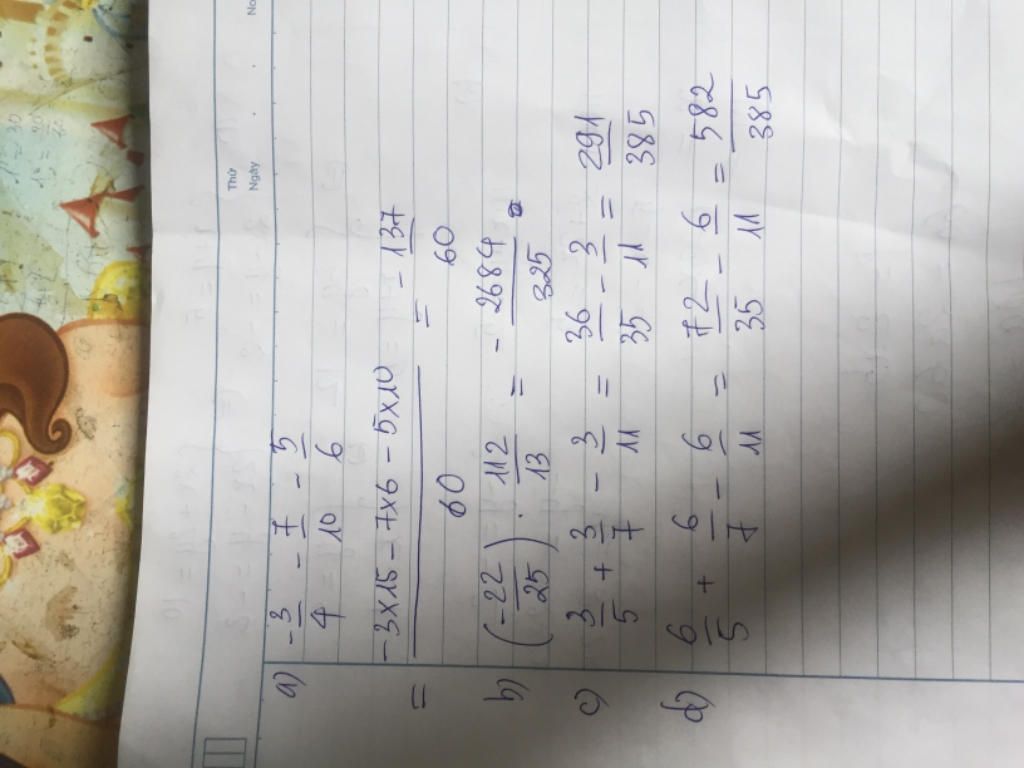 Thứ
Ngày
No
a) -3/4 - 7/10 - 5/6
= -3x15 - 7x6 - 5x10/60 = - 137/60
b) (-22/25) . 112/13 = - 2684/325
c) 3/5 + 3/7 - 3/11 = 36/35 - 3/11 = 291/385
d) 6/5 + 6/7 - 6/11 = 72/35 - 6/11 = 582/385